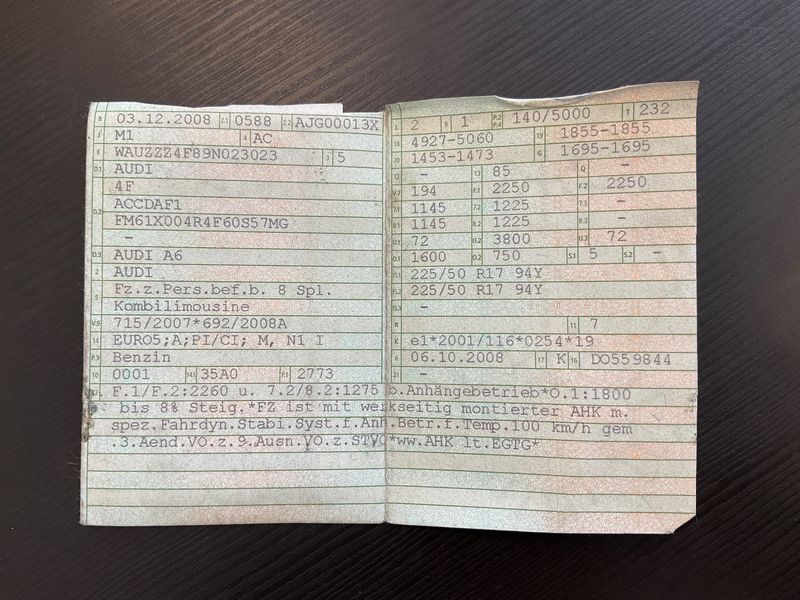 B 03.12.2008 2.1 0588 2.2 AJG00013X
J M1 4 AC
E WAUZZZ4F89N023023 3 5
D.1 AUDI
4F
D.2 ACCDAF1
FM61X004R4F60S57MG
-
D.3 AUDI A6
2 AUDI
5 Fz.z.Pers.bef.b. 8 Spl.
Kombilimousine
V.9 715/2007*692/2008A
14 EURO5;A;PI/CI; M, N1 I
P.3 Benzin
10 0001 14.1 35A0 P.1 2773
L 2 9 1 P.2 P.4 140/5000 T 232
18 4927-5060 19 1855-1855
20 1453-1473 G 1695-1695
12 - 13 85 Q -
V.7 194 F.1 2250 F.2 2250
7.1 1145 7.2 1225 7.3 -
8.1 1145 8.2 1225 8.3 -
U.1 72 U.2 3800 U.3 72
O.1 1600 O.2 750 S.1 5 S.2 -
15.1 225/50 R17 94Y
15.2 225/50 R17 94Y
15.3 -
R 11 7
K e1*2001/116*0254*19
6 06.10.2008 17 K 16 DO559844
21 -
22 F.1/F.2:2260 u. 7.2/8.2:1275 b.Anhängebetrieb*O.1:1800
bis 8% Steig.*FZ ist mit werkseitig montierter AHK m.
spez.Fahrdyn.Stabi.Syst.f.Anh.Betr.f.Temp.100 km/h gem
.3.Aend.VO.z.9.Ausn.VO.z.STVO*ww.AHK lt.EGTG*